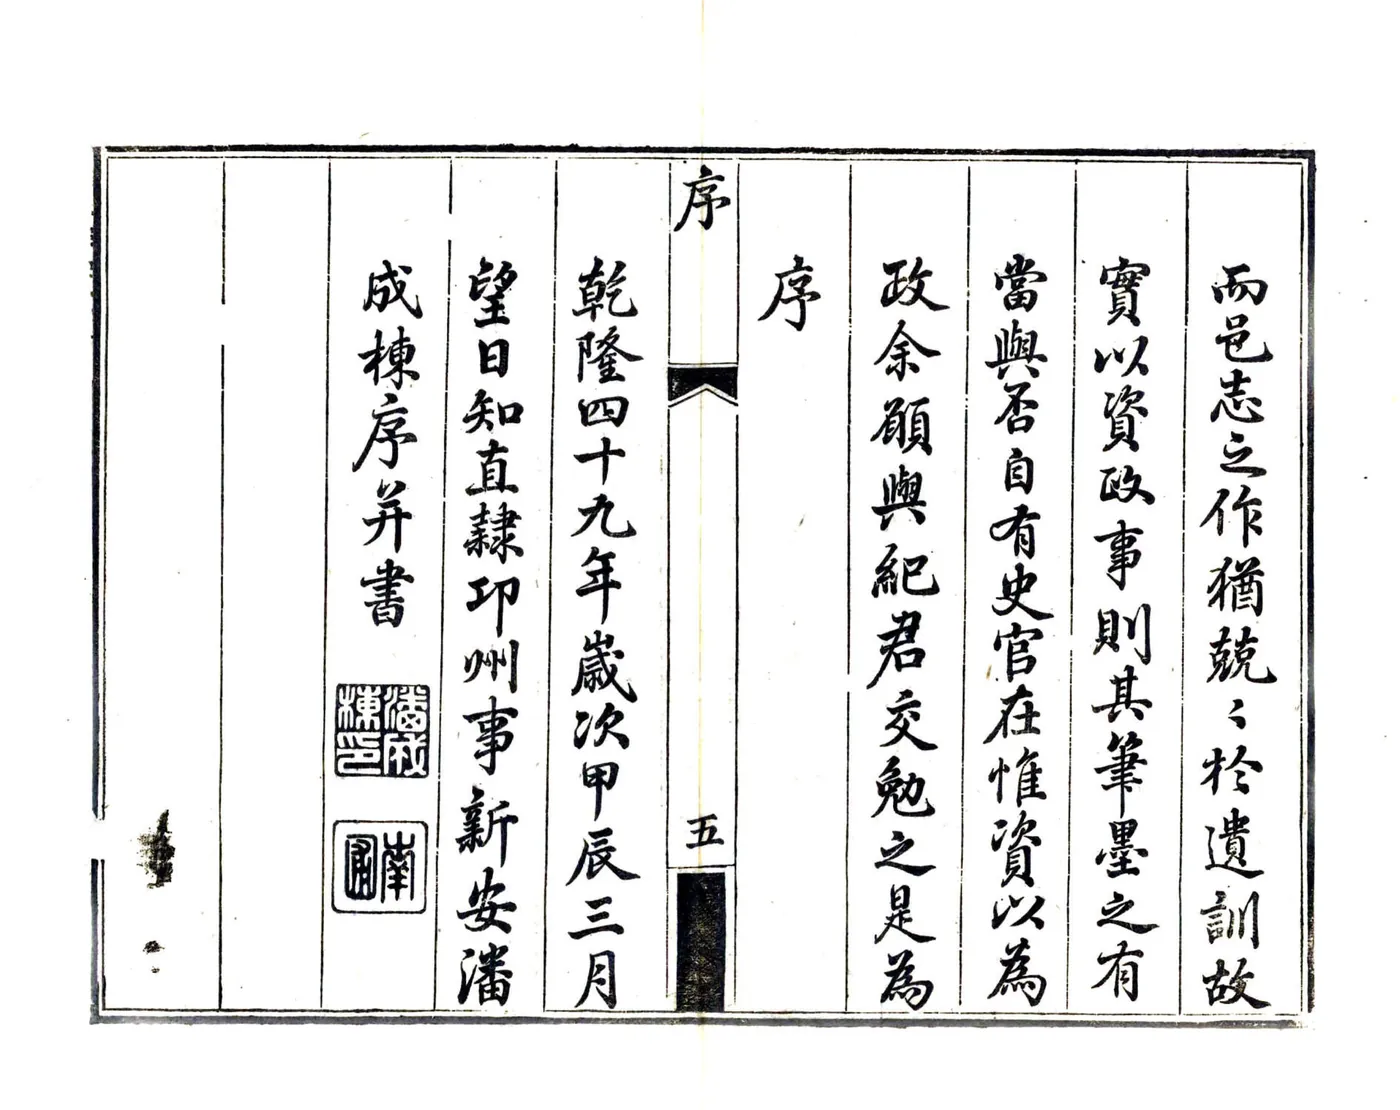 而邑志之作猶兢〻於遺訓故
實以資政事則其筆墨之有
當與否自有史官在惟資以為
政余願與紀君交勉之是為
序
序
五
乾隆四十九年歲次甲辰三月
望日知直隸邛州事新安潘
成棟序并書
潘成棟印